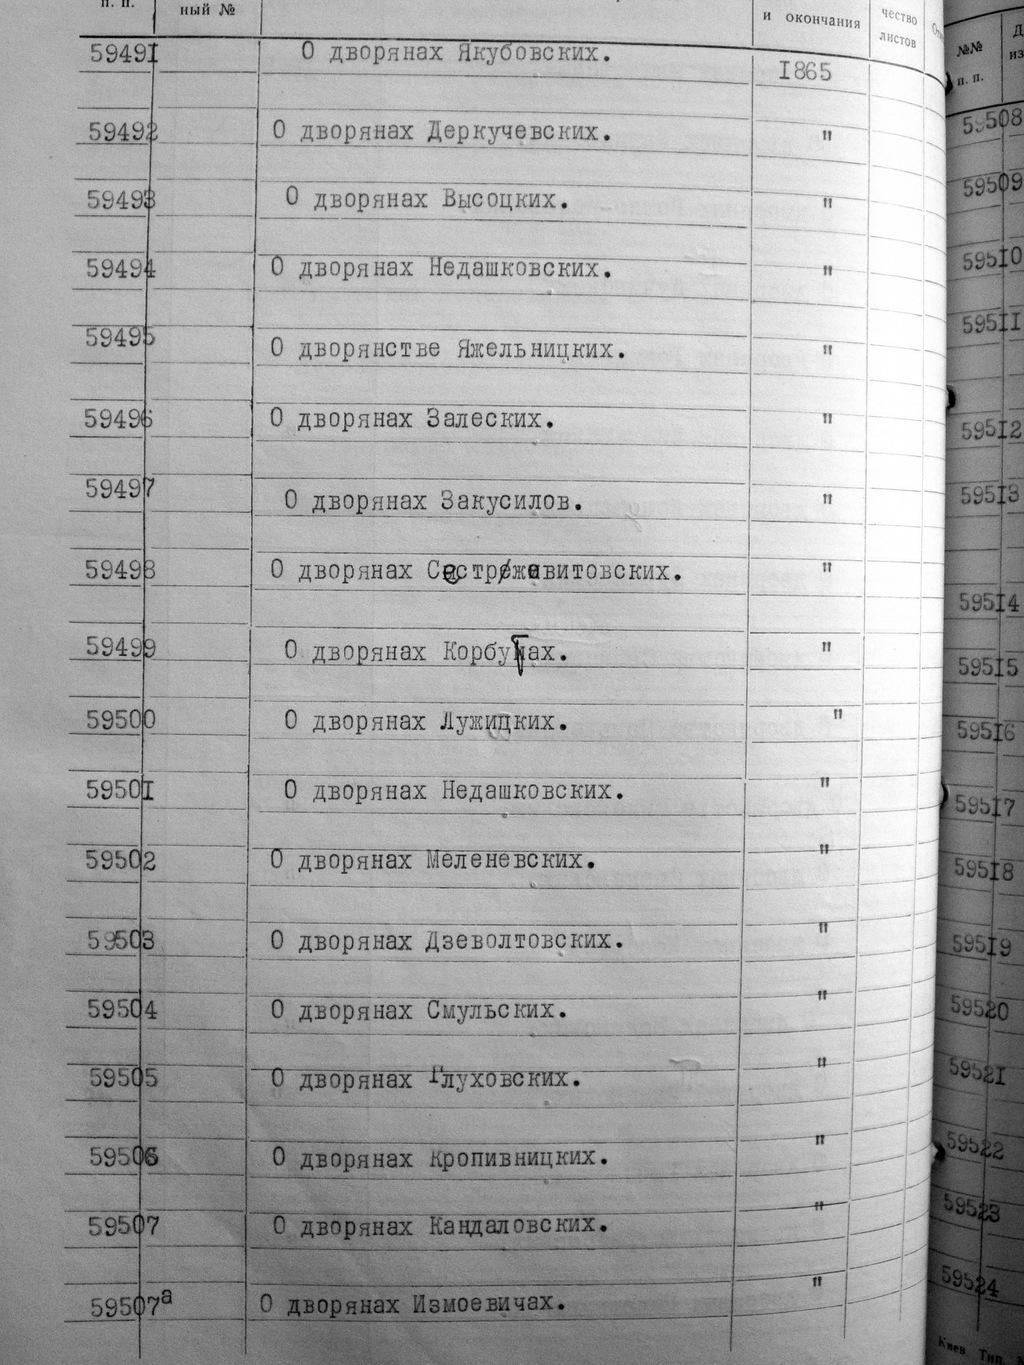 п. п. ный № и окончания чество листов
59491 О дворянах Якубовских. 1865
59492 О дворянах Деркучевских. "
59493 О дворянах Высоцких. "
59494 О дворянах Недашковских. "
59495 О дворянстве Яжельницких. "
59496 О дворянах Залеских. "
59497 О дворянах Закусилов. "
59498 О дворянах "
59499 О дворянах "
59500 О дворянах Лужицких. "
59501 О дворянах Недашковских. "
59502 О дворянах Меленевских. "
59503 О дворянах Дзеволтовских. "
59504 О дворянах Смульских. "
59505 О дворянах Глуховских. "
59506 О дворянах Кропивницких. "
59507 О дворянах Кандаловских. "
59507а О дворянах Измоевичах. "
№№
п. п.
59508
59509
59510
59511
59512
59513
59514
59515
59516
59517
59518
59519
59520
59521
59522
59523
59524
Киев Тип.